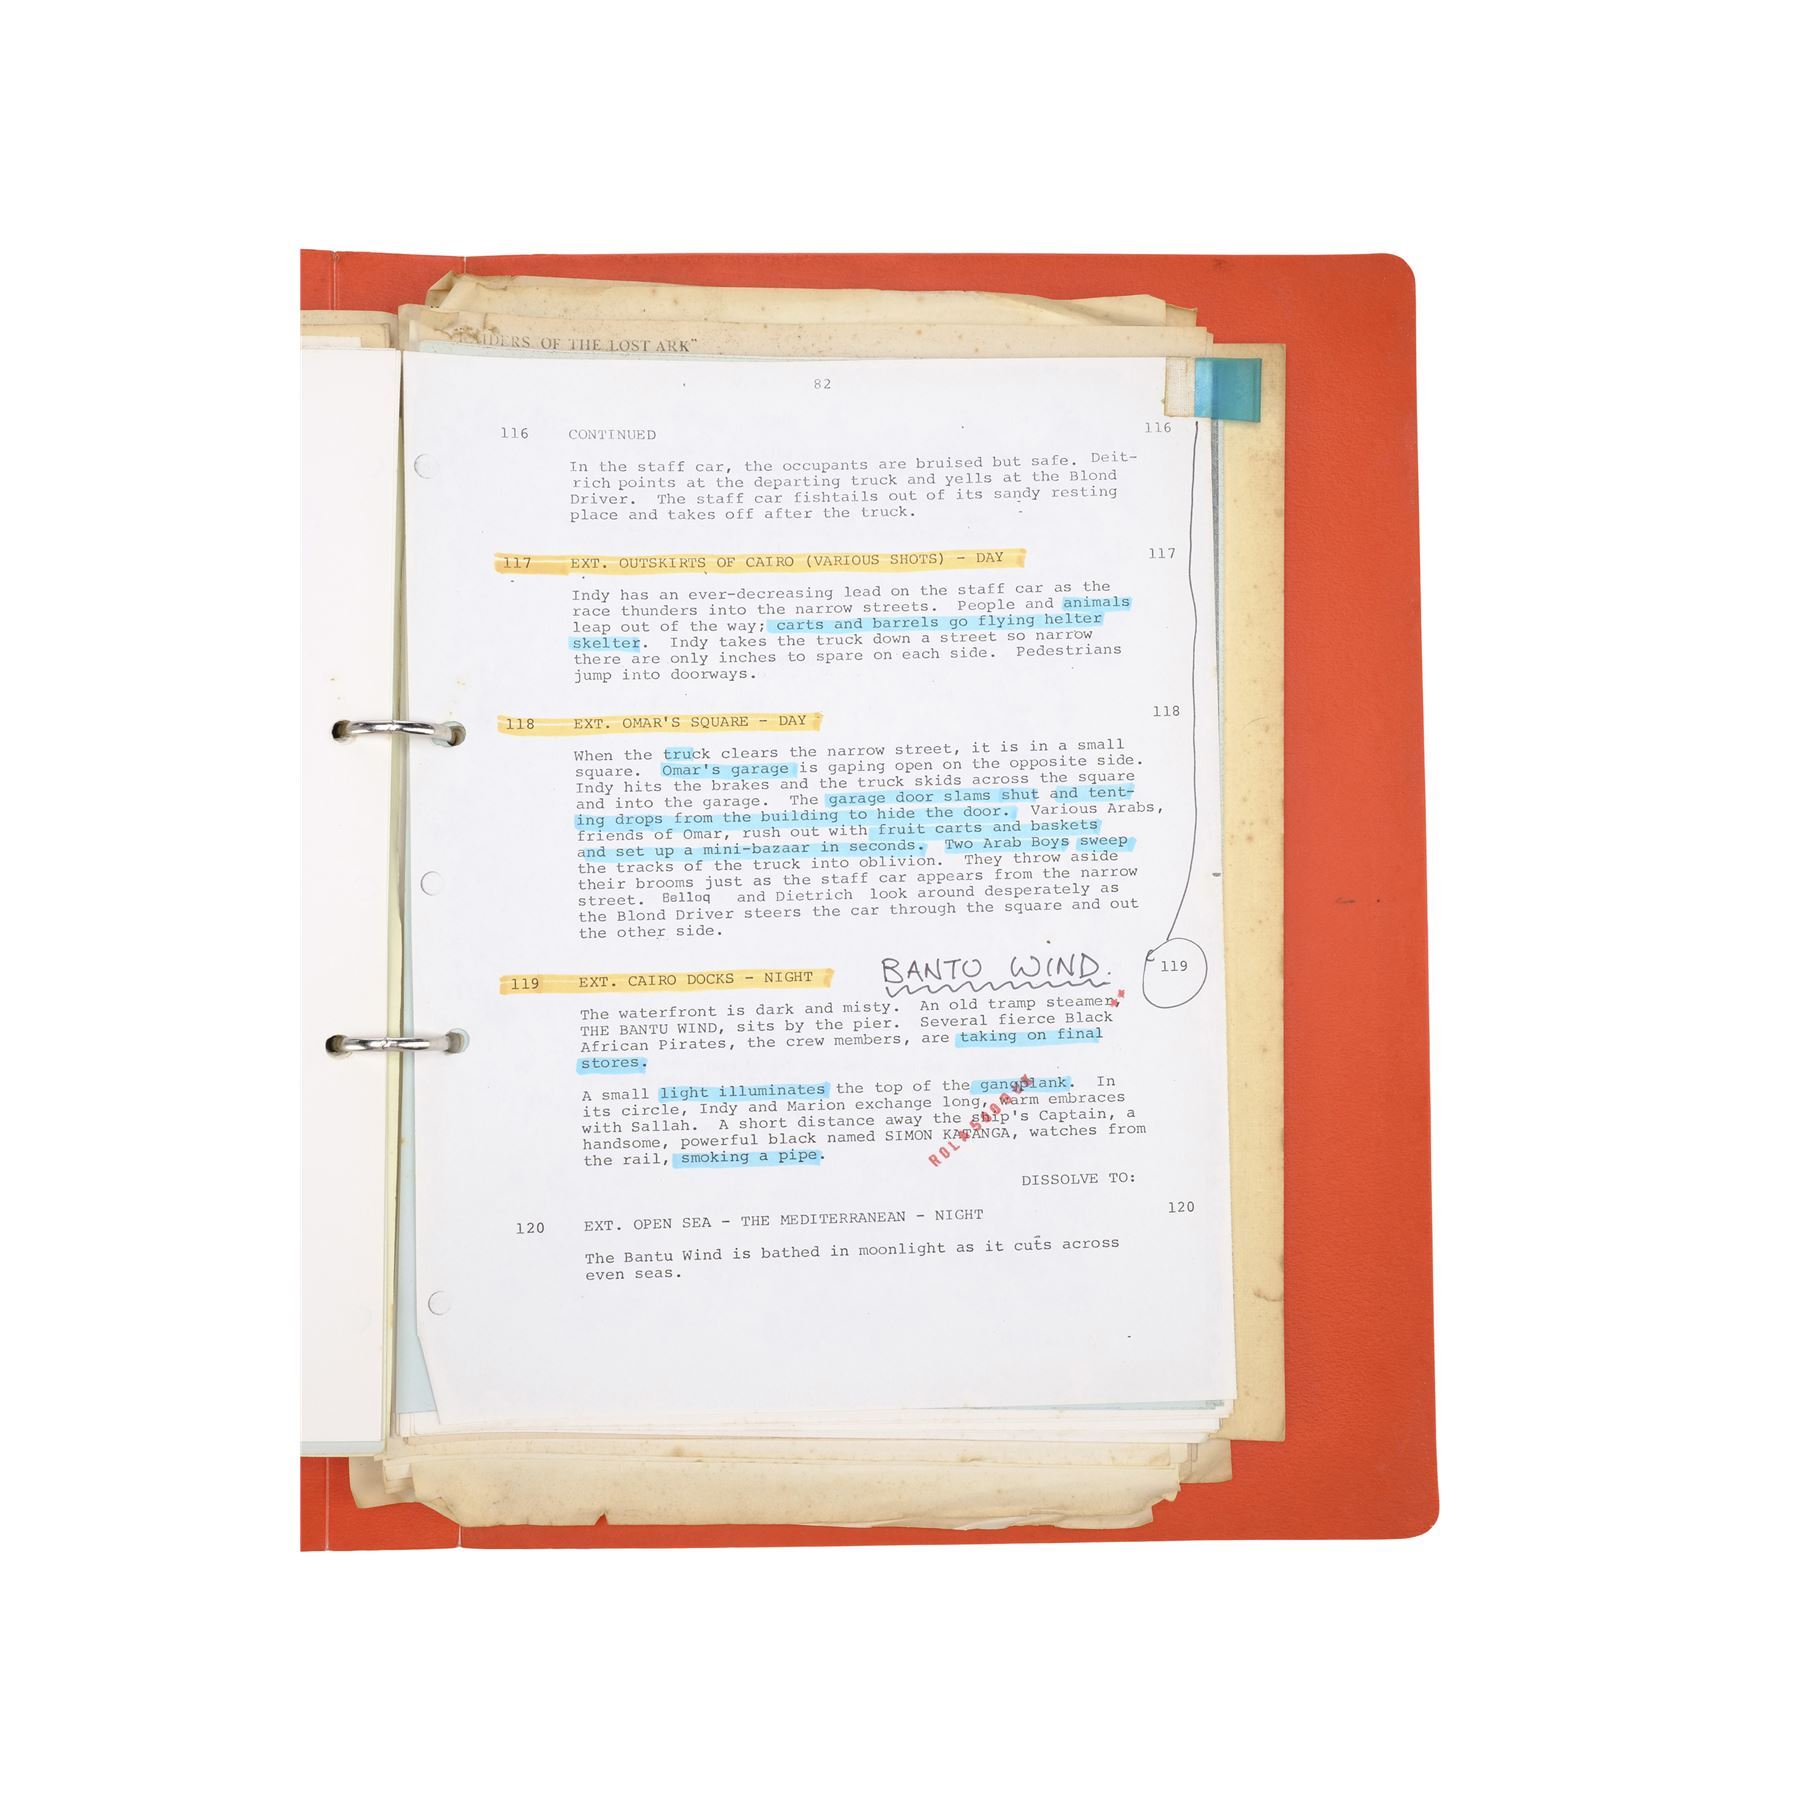 OF THE LOST ARK"
82
116 CONTINUED 116
In the staff car, the occupants are bruised but safe. Deit-
rich points at the departing truck and yells at the Blond
Driver. The staff car fishtails out of its sandy resting
place and takes off after the truck.
117 EXT. OUTSKIRTS OF CAIRO (VARIOUS SHOTS) - DAY 117
Indy has an ever-decreasing lead on the staff car as the
race thunders into the narrow streets. People and animals
leap out of the way; carts and barrels go flying helter
skelter. Indy takes the truck down a street so narrow
there are only inches to spare on each side. Pedestrians
jump into doorways.
118 EXT. OMAR'S SQUARE - DAY 118
When the truck clears the narrow street, it is in a small
square. Omar's garage is gaping open on the opposite side.
Indy hits the brakes and the truck skids across the square
and into the garage. The garage door slams shut and tent-
ing drops from the building to hide the door. Various Arabs,
friends of Omar, rush out with fruit carts and baskets
and set up a mini-bazaar in seconds. Two Arab Boys sweep
the tracks of the truck into oblivion. They throw aside
their brooms just as the staff car appears from the narrow
street. Belloq and Dietrich look around desperately as
the Blond Driver steers the car through the square and out
the other side.
BANTU WIND.
119 EXT. CAIRO DOCKS - NIGHT 119
The waterfront is dark and misty. An old tramp steamer,
THE BANTU WIND, sits by the pier. Several fierce Black
African Pirates, the crew members, are taking on final
stores.
A small light illuminates the top of the gangplank. In
its circle, Indy and Marion exchange long, warm embraces
with Sallah. A short distance away the ship's Captain, a
handsome, powerful black named SIMON KATANGA, watches from
the rail, smoking a pipe.
DISSOLVE TO:
120 EXT. OPEN SEA - THE MEDITERRANEAN - NIGHT 120
The Bantu Wind is bathed in moonlight as it cuts across
even seas.